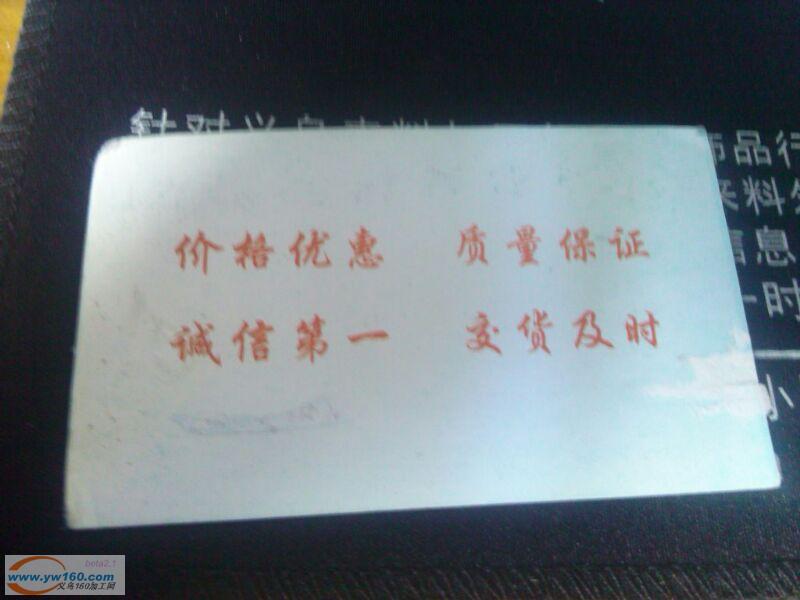 针对义乌
饰品行
来料
信息
一时
价格优惠 质量保证
诚信第一 交货及时
小
beta2.1
www.yw160.com
义乌160加工网